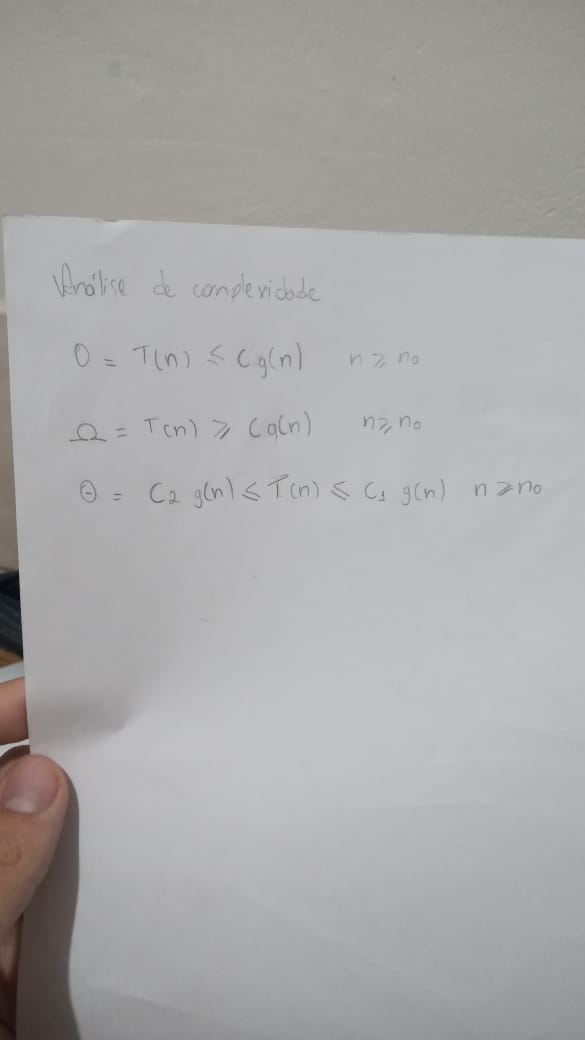 Análise de complexidade
O = T(n) ≤ Cg(n) n ≥ n₀
Ω = T(n) ≥ Cg(n) n ≥ n₀
Θ = C₂ g(n) ≤ T(n) ≤ C₁ g(n) n ≥ n₀